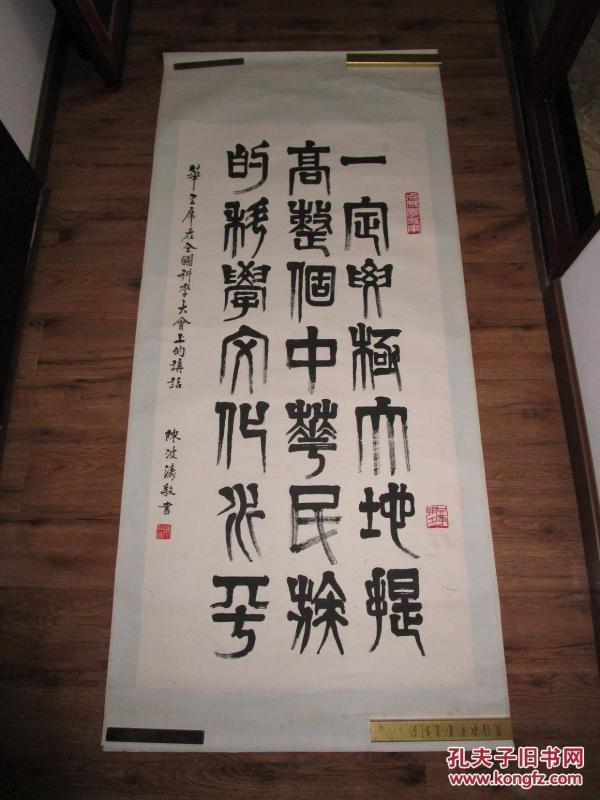 一定要極大地提
高整個中華民族
的科學文化水平
華主席在全國科學大會上的講話
陳波濤敬書
孔夫子旧书网
www.kongfz.com